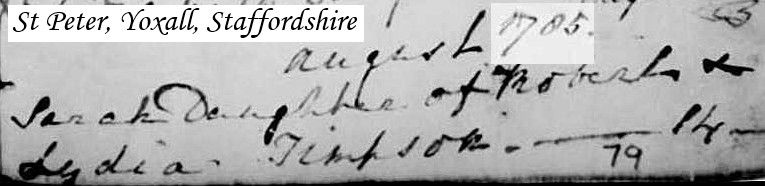 St Peter, Yoxall, Staffordshire
August 1785.
Sarah Daughter of Robert &
Lydia Timpson. — 14 —
79